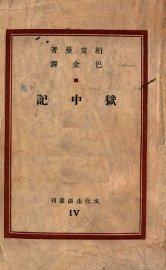 著曼克柏
譯金巴
記中獄
刊叢活生化文
IV